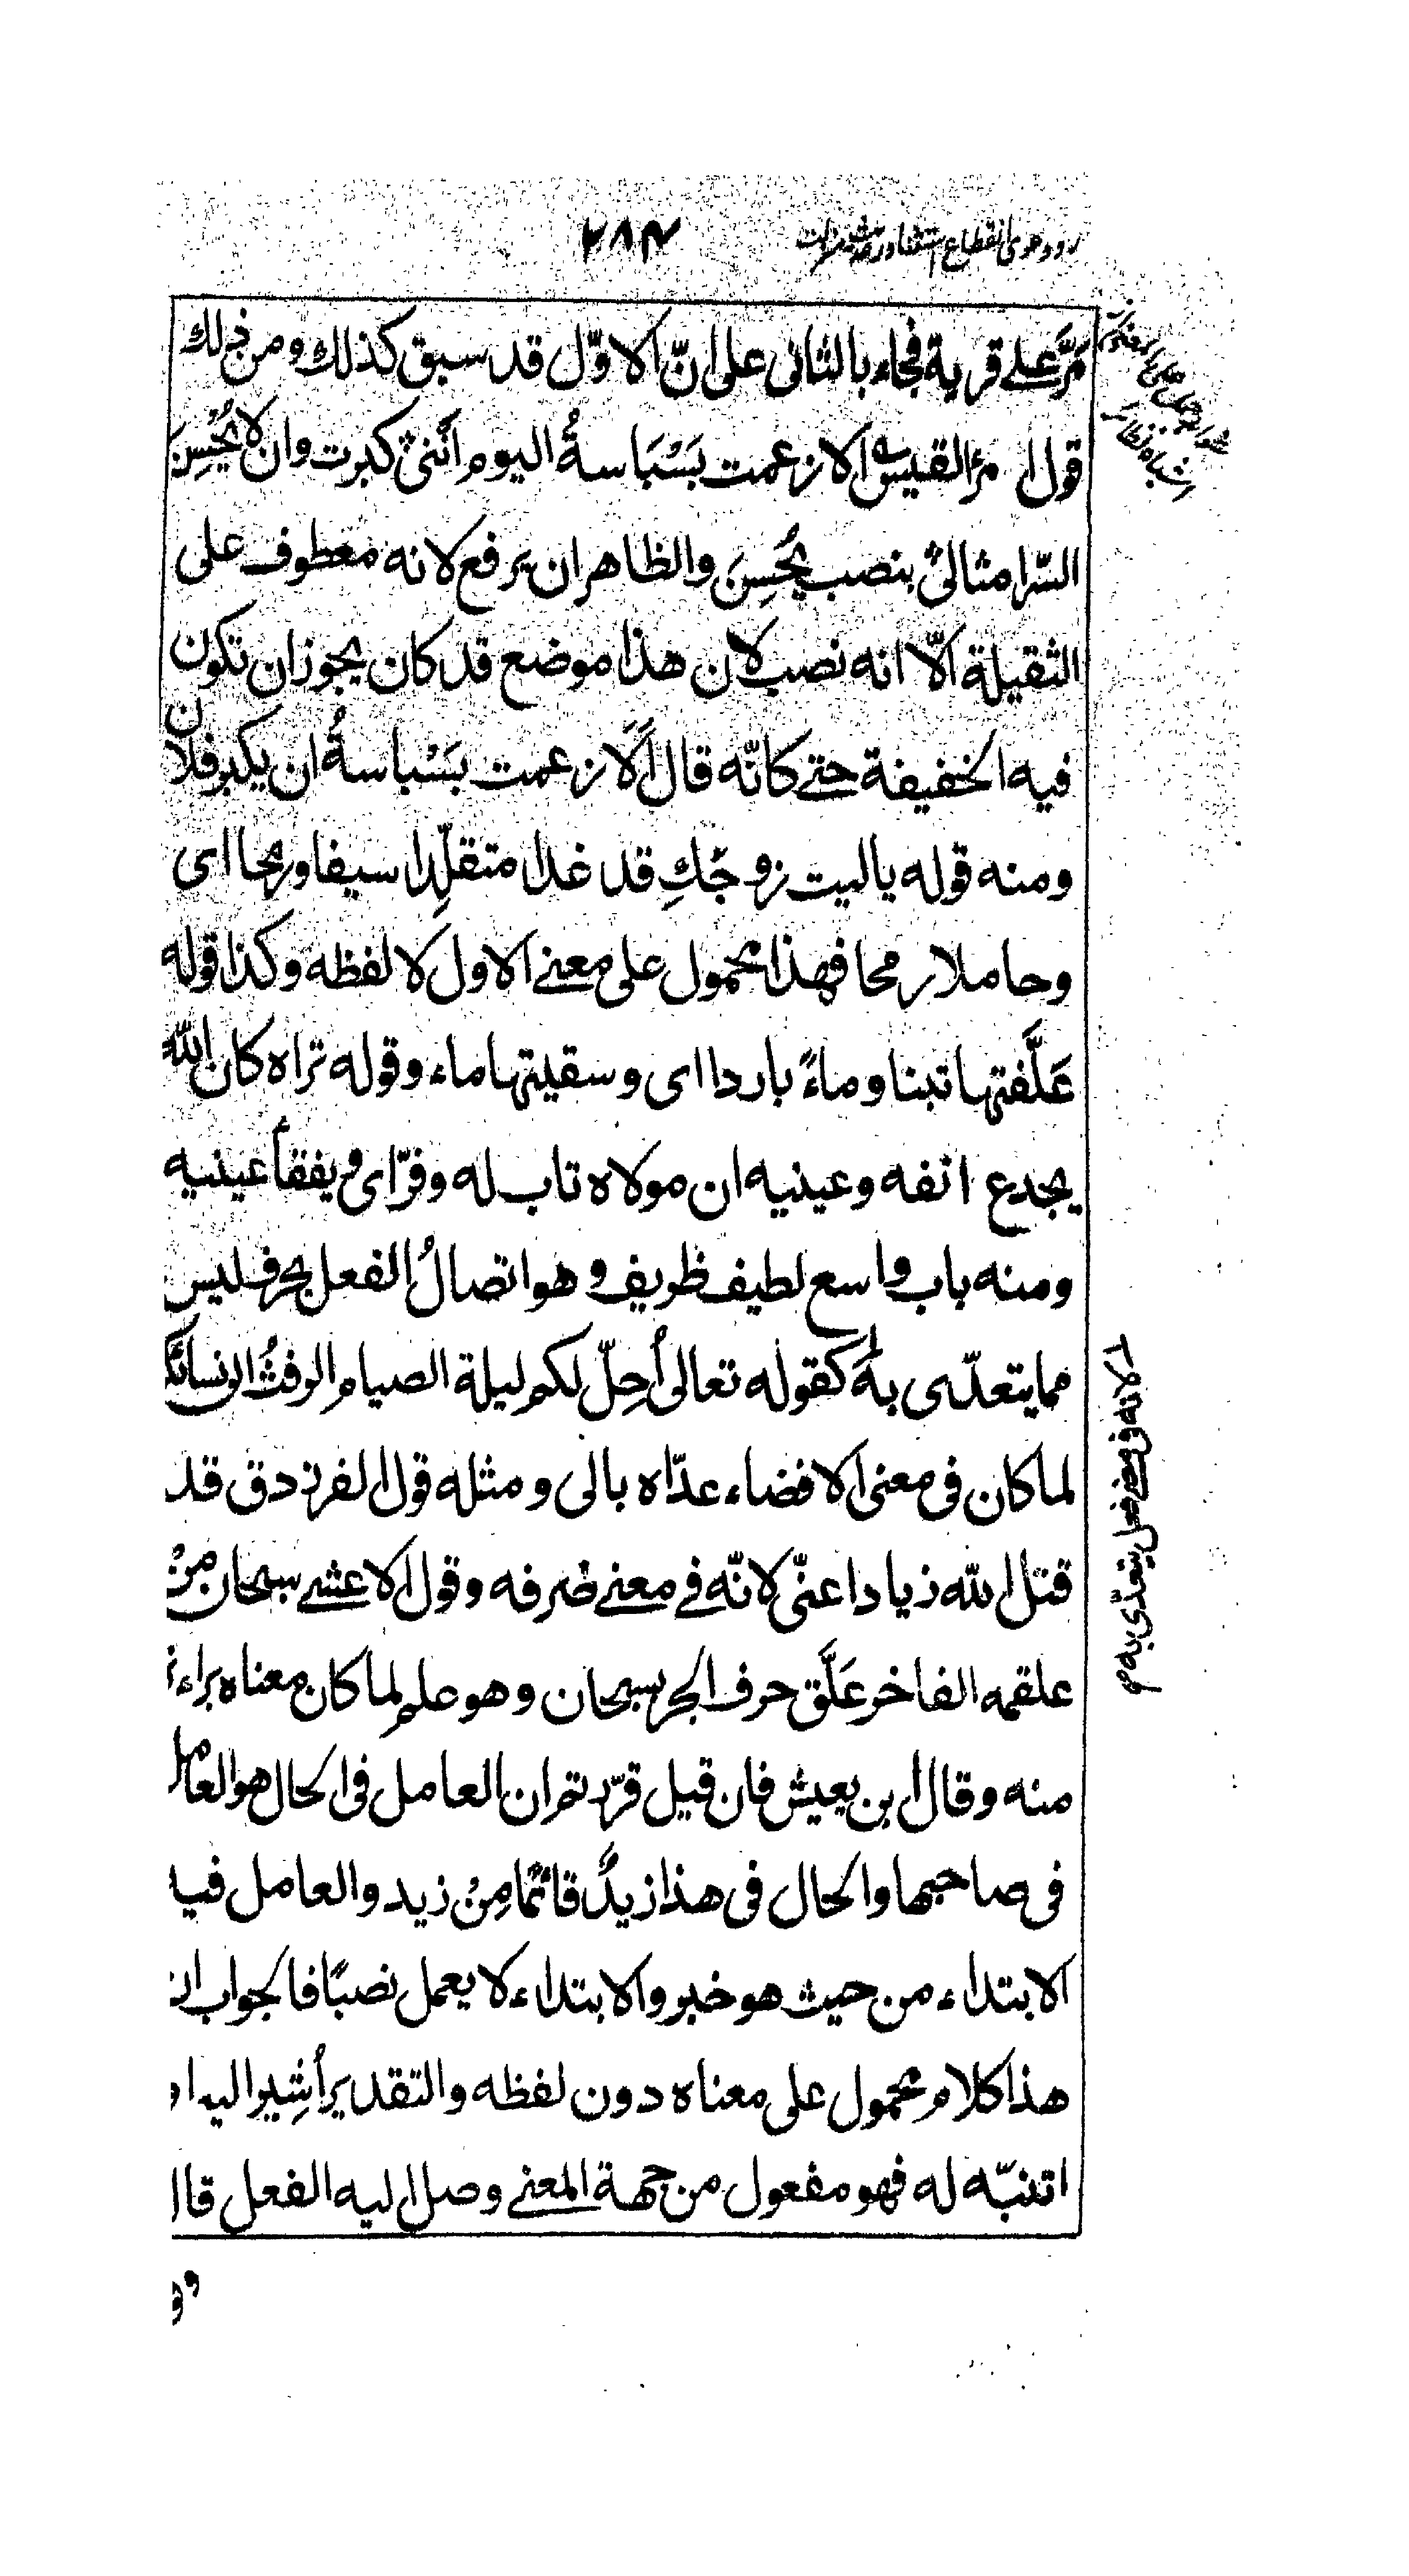 ۲۸۴
مَرَّ على قرية فجاء بالثانى على انّ الاوّل قد سبق كذلك ومن ذلك
قول امرء القيس الا زعمت بَسْبَاسةُ اليوم انّنى كبرت وان لا يُحْسِنَ
السّرا مثالى بنصب يُحْسِنَ والظاهر ان يرفع لانه معطوف على
الثقيلة الّا انه نصب لان هذا موضع قد كان يجوز ان تكون
فيه الخفيفة حتى كانّه قال اَلَا زعمت بَسْباسةُ ان يكبر فلان
ومنه قوله ياليت زوجَكِ قد غدا متقلِّدا سيفا ورمحا اى
وحاملا رمحا فهذا محمول على معنى الاول لا لفظه وكذا قوله
عَلَّفتها تبنا وماءً باردا اى وسقيتها ماء وقوله تراه كان الله
يجدع انفه وعينيه ان مولاه تاب له وفرّ اى ويفقأ عينيه
ومنه باب واسع لطيف ظريف وهو اتصالُ الفعل بحرف ليس
مما يتعدّى به كقوله تعالى أُحِلّ لكم ليلة الصيام الرفثُ الى نسائكم
لما كان فى معنى الافضاء عدّاه بالى ومثله قول الفرزدق قد
قتل الله زيادا عنّى لانّه فى معنى صرفه وقول الاعشى سبحان مِنْ
علقمه الفاخر عَلَّق حرف الجر بسبحان وهو علم لما كان معناه براءة
منه وقال ابن يعيش فان قيل قرّرتم ان العامل فى الحال هو العامل
فى صاحبها والحال فى هذا زيدٌ قائمًا مِنْ زيد والعامل فيه
الابتداء من حيث هو خبر والابتداء لا يعمل نصبًا فالجواب ان
هذا كلام محمول على معناه دون لفظه والتقدير أُشِير اليه او
اتنبّه له فهو مفعول من جهة المعنى وصل اليه الفعل قال
لانه فى معنى فعل يتعدّى به م